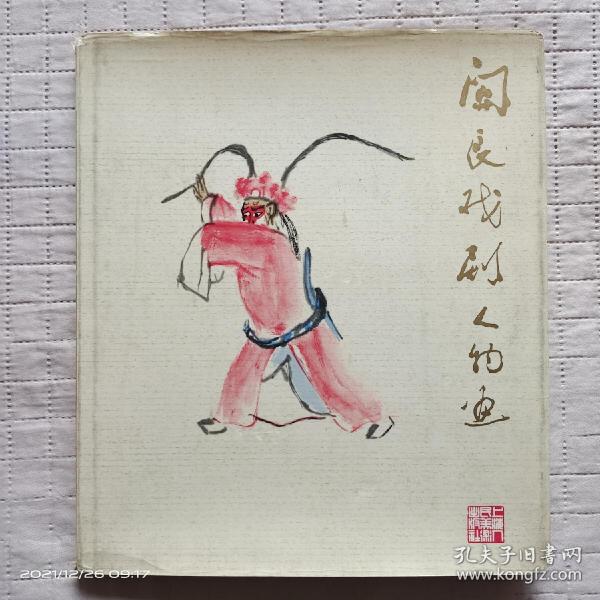 关良戏剧人物画
上海人
民美术
出版社
2021/12/26 09:17
孔夫子旧书网
www.kongfz.com